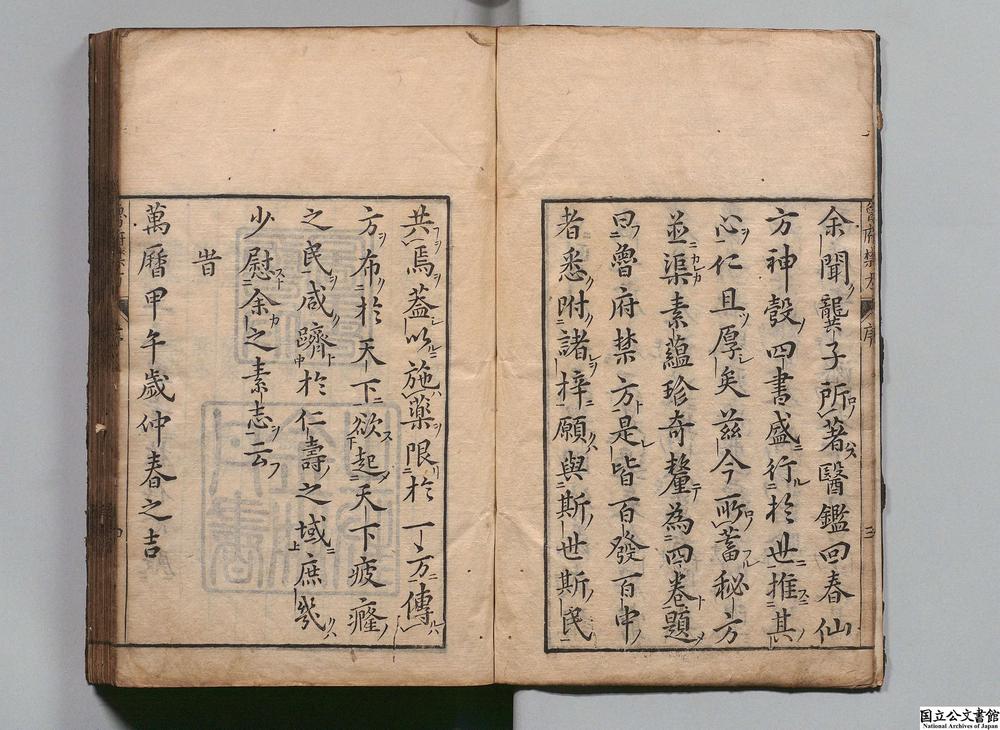 余聞龔子所著醫鑑回春仙
方神彀四書盛行於世推其
心仁且厚矣茲今所蓄秘方
並渠素蘊珍奇釐為四卷題
曰魯府禁方是皆百發百中
者悉附諸梓願與斯世斯民
共焉蓋以施藥限於一方傳
方布於天下欲起天下疲癃
之民咸躋於仁壽之域庶幾
少慰余之素志云
旹
萬曆甲午歲仲春之吉
国立公文書館
National Archives of Japan